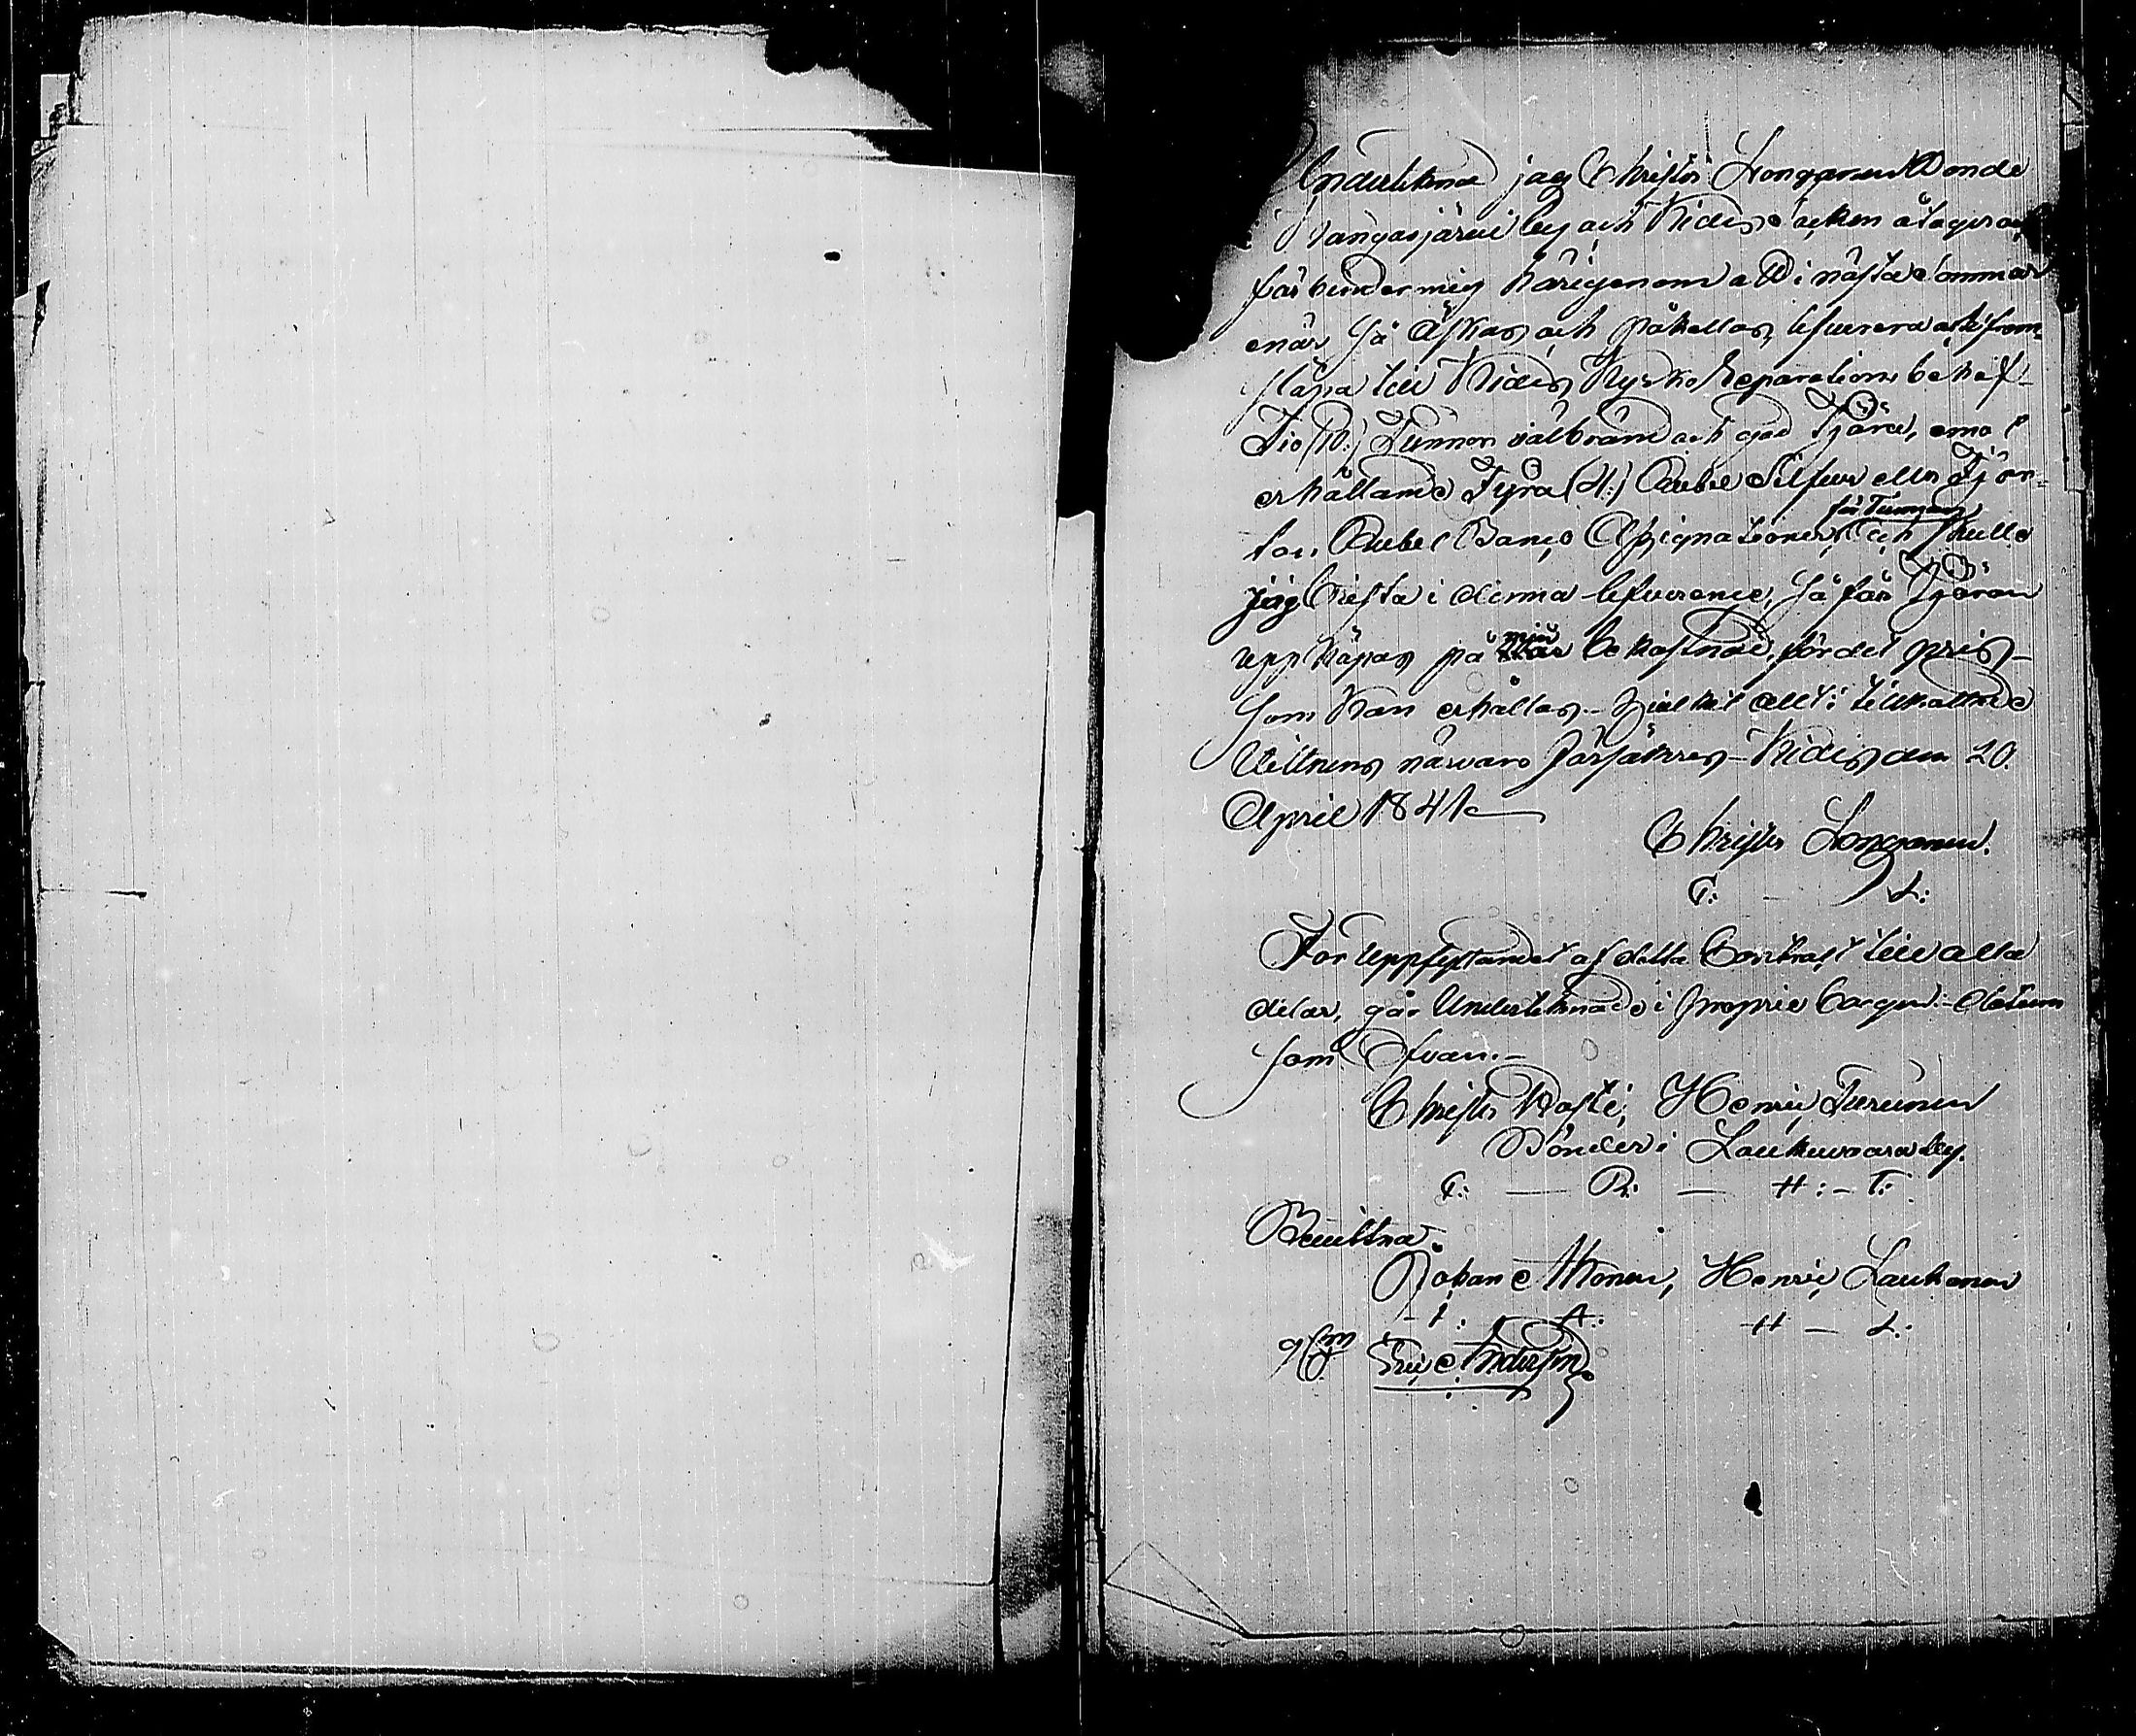 Undertecknad jag Christer Longonen Bonde
i Kangasjärvi by och Kides socken åtager och
förbinder mig härigenom att i nästa Sommar
enär så äskas och påkallas, lefverera och fram-
släpa till Kides Kyrko Reparations behof
Tio (10.) Tunnor välbränd och god Tjära, emot
erhållande Fyra (4:) Rubel Silfver eller Fjor-
ton Rubel Banco Assignationer, för Tunnan och skulle
jag brista i denna lefverence, så får Tjäran
uppköpas på min bekostnad, för det pris
som kan erhållas. Hvilket allt i tillkallade
Vittnens närvaro försäkras. Kides den 20.
April 1841
Christer Longonen.
C: — L:
För uppfyllandet af detta Contract till alla
delar, går Undertecknade i proprie borgen. Datum
som ofvan.
Christer Rosti, Henric Turunen
Bönder i Loukuvaara by.
C: — R: — H: — T:
Bevittna
Johan Ikonen, Henric Laukanen
I: H — L:
Eric Andersson